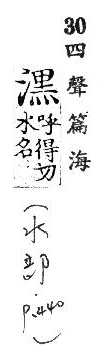 30 四聲篇海
潶 呼得切
水名
(水部 p.440)